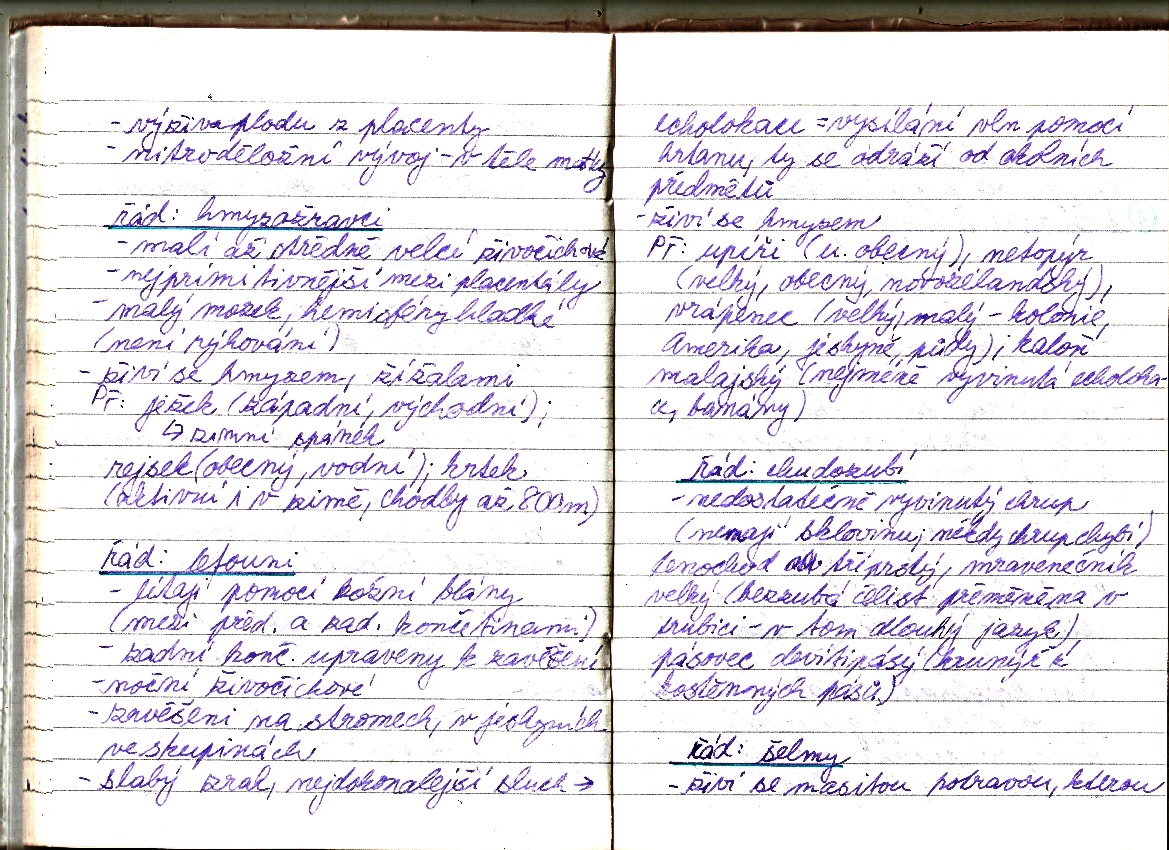 - výživa plodu z placenty
- nitroděložní vývoj - v těle matky
řád: hmyzožravci
- malí až středně velcí živočichové
- nejprimitivnější mezi placentály
- malý mozek, hemisféry hladké
(není rýhování)
- živí se hmyzem, žížalami
Př: ježek (západní, východní);
↳ zimní spánek
rejsek (obecný, vodní); krtek
(aktivní i v zimě, chodby až 800m)
řád: letouni
- létají pomocí kožní blány
(mezi před. a zad. končetinami)
- zadní konč. upraveny k zavěšení
- noční živočichové
- zavěšeni na stromech, v jeskyních
ve skupinách
- slabý zrak, nejdokonalejší sluch →
echolokace = vysílání vln pomocí
hrtanu, ty se odráží od okolních
předmětů
- živí se hmyzem
Př: upíři (u. obecný), netopýr
(velký, obecný, novozélandský),
vrápenec (velký, malý - kolonie,
Amerika, jeskyně, půdy), kaloň
malajský (nejméně vyvinutá echoloka-
ce, banány)
řád: chudozubí
- nedostatečně vyvinutý chrup
(nemají sklovinu, někdy chrup chybí)
lenochod tříprstý, mravenečník
velký (bezzubá čelist přeměněna v
trubici - v tom dlouhý jazyk),
pásovec devítipásý (krunýř z
kostěnných pásů)
řád: šelmy
- živí se masitou potravou, kterou